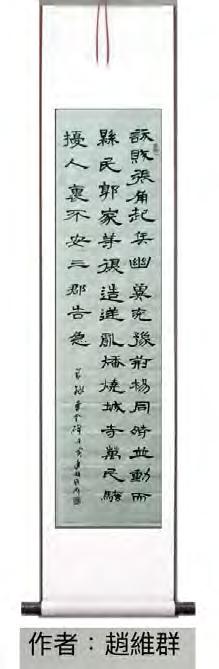 訞賊張角起兵幽冀兗豫荊楊同時並動而
縣民郭家等復造逆亂燔燒城寺萬民騷
擾人裹不安三郡告急
作者：趙維群